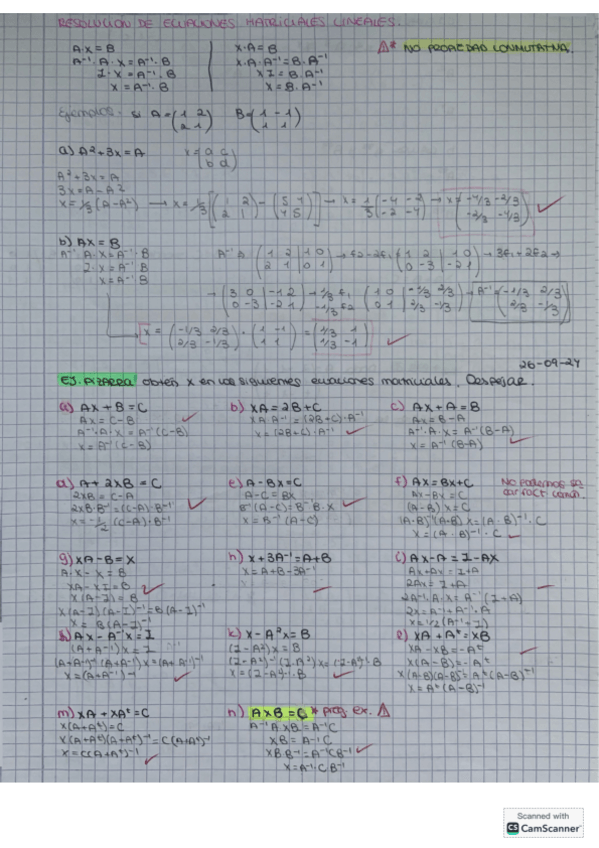 RESOLUCIÓN DE ECUACIONES MATRICIALES LINEALES.
A·X = B
A⁻¹·A·X = A⁻¹·B
I·X = A⁻¹·B
X = A⁻¹·B
X·A = B
X·A·A⁻¹ = B·A⁻¹
X I = B·A⁻¹
X = B·A⁻¹
NO PROPIEDAD CONMUTATIVA.
Ejemplos: si A = (1 2 / 2 1) B = (1 -1 / 1 1)
a) A² + 3X = A X = (a c / b d)
A² + 3X = A
3X = A - A²
X = 1/3 (A - A²) → X = 1/3 [(1 2 / 2 1) - (5 4 / 4 5)] → X = 1/3 (-4 -2 / -2 -4) → X = (-4/3 -2/3 / -2/3 -4/3)
b) AX = B
A⁻¹·A·X = A⁻¹·B
I·X = A⁻¹·B
X = A⁻¹·B
(1 2 | 1 0 / 2 1 | 0 1) → F2 - 2F1 (1 2 | 1 0 / 0 -3 | -2 1) → 3F1 + 2F2 →
→ (3 0 | -1 2 / 0 -3 | -2 1) → 1/3 F1 -1/3 F2 (1 0 | -1/3 2/3 / 0 1 | 2/3 -1/3) → A⁻¹ = (-1/3 2/3 / 2/3 -1/3)
X = (-1/3 2/3 / 2/3 -1/3) · (1 -1 / 1 1) = (1/3 1 / 1/3 -1)
26-09-24
EJ. PIZARRA obtén X en las siguientes ecuaciones matriciales. Despejar.
a) AX + B = C
AX = C - B
A⁻¹·A·X = A⁻¹(C-B)
X = A⁻¹(C-B)
b) XA = 2B + C
XA·A⁻¹ = (2B+C)·A⁻¹
X = (2B+C)·A⁻¹
c) AX + A = B
AX = B - A
A⁻¹·A·X = A⁻¹(B-A)
X = A⁻¹(B-A)
d) A + 2XB = C
2XB = C - A
2XB·B⁻¹ = (C-A)·B⁻¹
(C-A)·B⁻¹
e) A - BX = C
A - C = BX
B⁻¹(A-C) = B⁻¹B·X
X = B⁻¹(A-C)
f) AX = BX + C
AX - BX = C
(A-B)X = C
(A-B)⁻¹(A-B)X = (A-B)⁻¹·C
X = (A-B)⁻¹·C
No podemos
g) XA - B = X
A·X - X = B
XA - XI = B
X(A-I) = B
X(A-I)(A-I)⁻¹ = B(A-I)⁻¹
X = B(A-I)⁻¹
h) X + 3A⁻¹ = A + B
X = A + B - 3A⁻¹
i) AX - A = I - AX
AX + AX = I + A
2AX = I + A
2A⁻¹·A·X = A⁻¹(I+A)
2X = A⁻¹ + A⁻¹·A
X = 1/2 (A⁻¹ + I)
AX - A⁻¹X = I
(A + A⁻¹)X = I
(A+A⁻¹)⁻¹(A+A⁻¹)X = (A+A⁻¹)⁻¹
X = (A+A⁻¹)⁻¹
k) X - A²X = B
(I - A²)X = B
(I-A²)⁻¹(I-A²)X = (I-A²)⁻¹·B
X = (I-A²)⁻¹·B
XA + Aᵗ = XB
XA - XB = -Aᵗ
X(A-B) = -Aᵗ
X(A-B)(A-B)⁻¹ = Aᵗ(A-B)⁻¹
X = Aᵗ(A-B)⁻¹
m) XA + XAᵗ = C
X(A+Aᵗ) = C
X(A+Aᵗ)(A+Aᵗ)⁻¹ = C(A+Aᵗ)⁻¹
X = C(A+Aᵗ)⁻¹
n) AXB = C
A⁻¹AXB = A⁻¹C
XB = A⁻¹C
XBB⁻¹ = A⁻¹CB⁻¹
X = A⁻¹·CB⁻¹
Scanned with
CS CamScanner